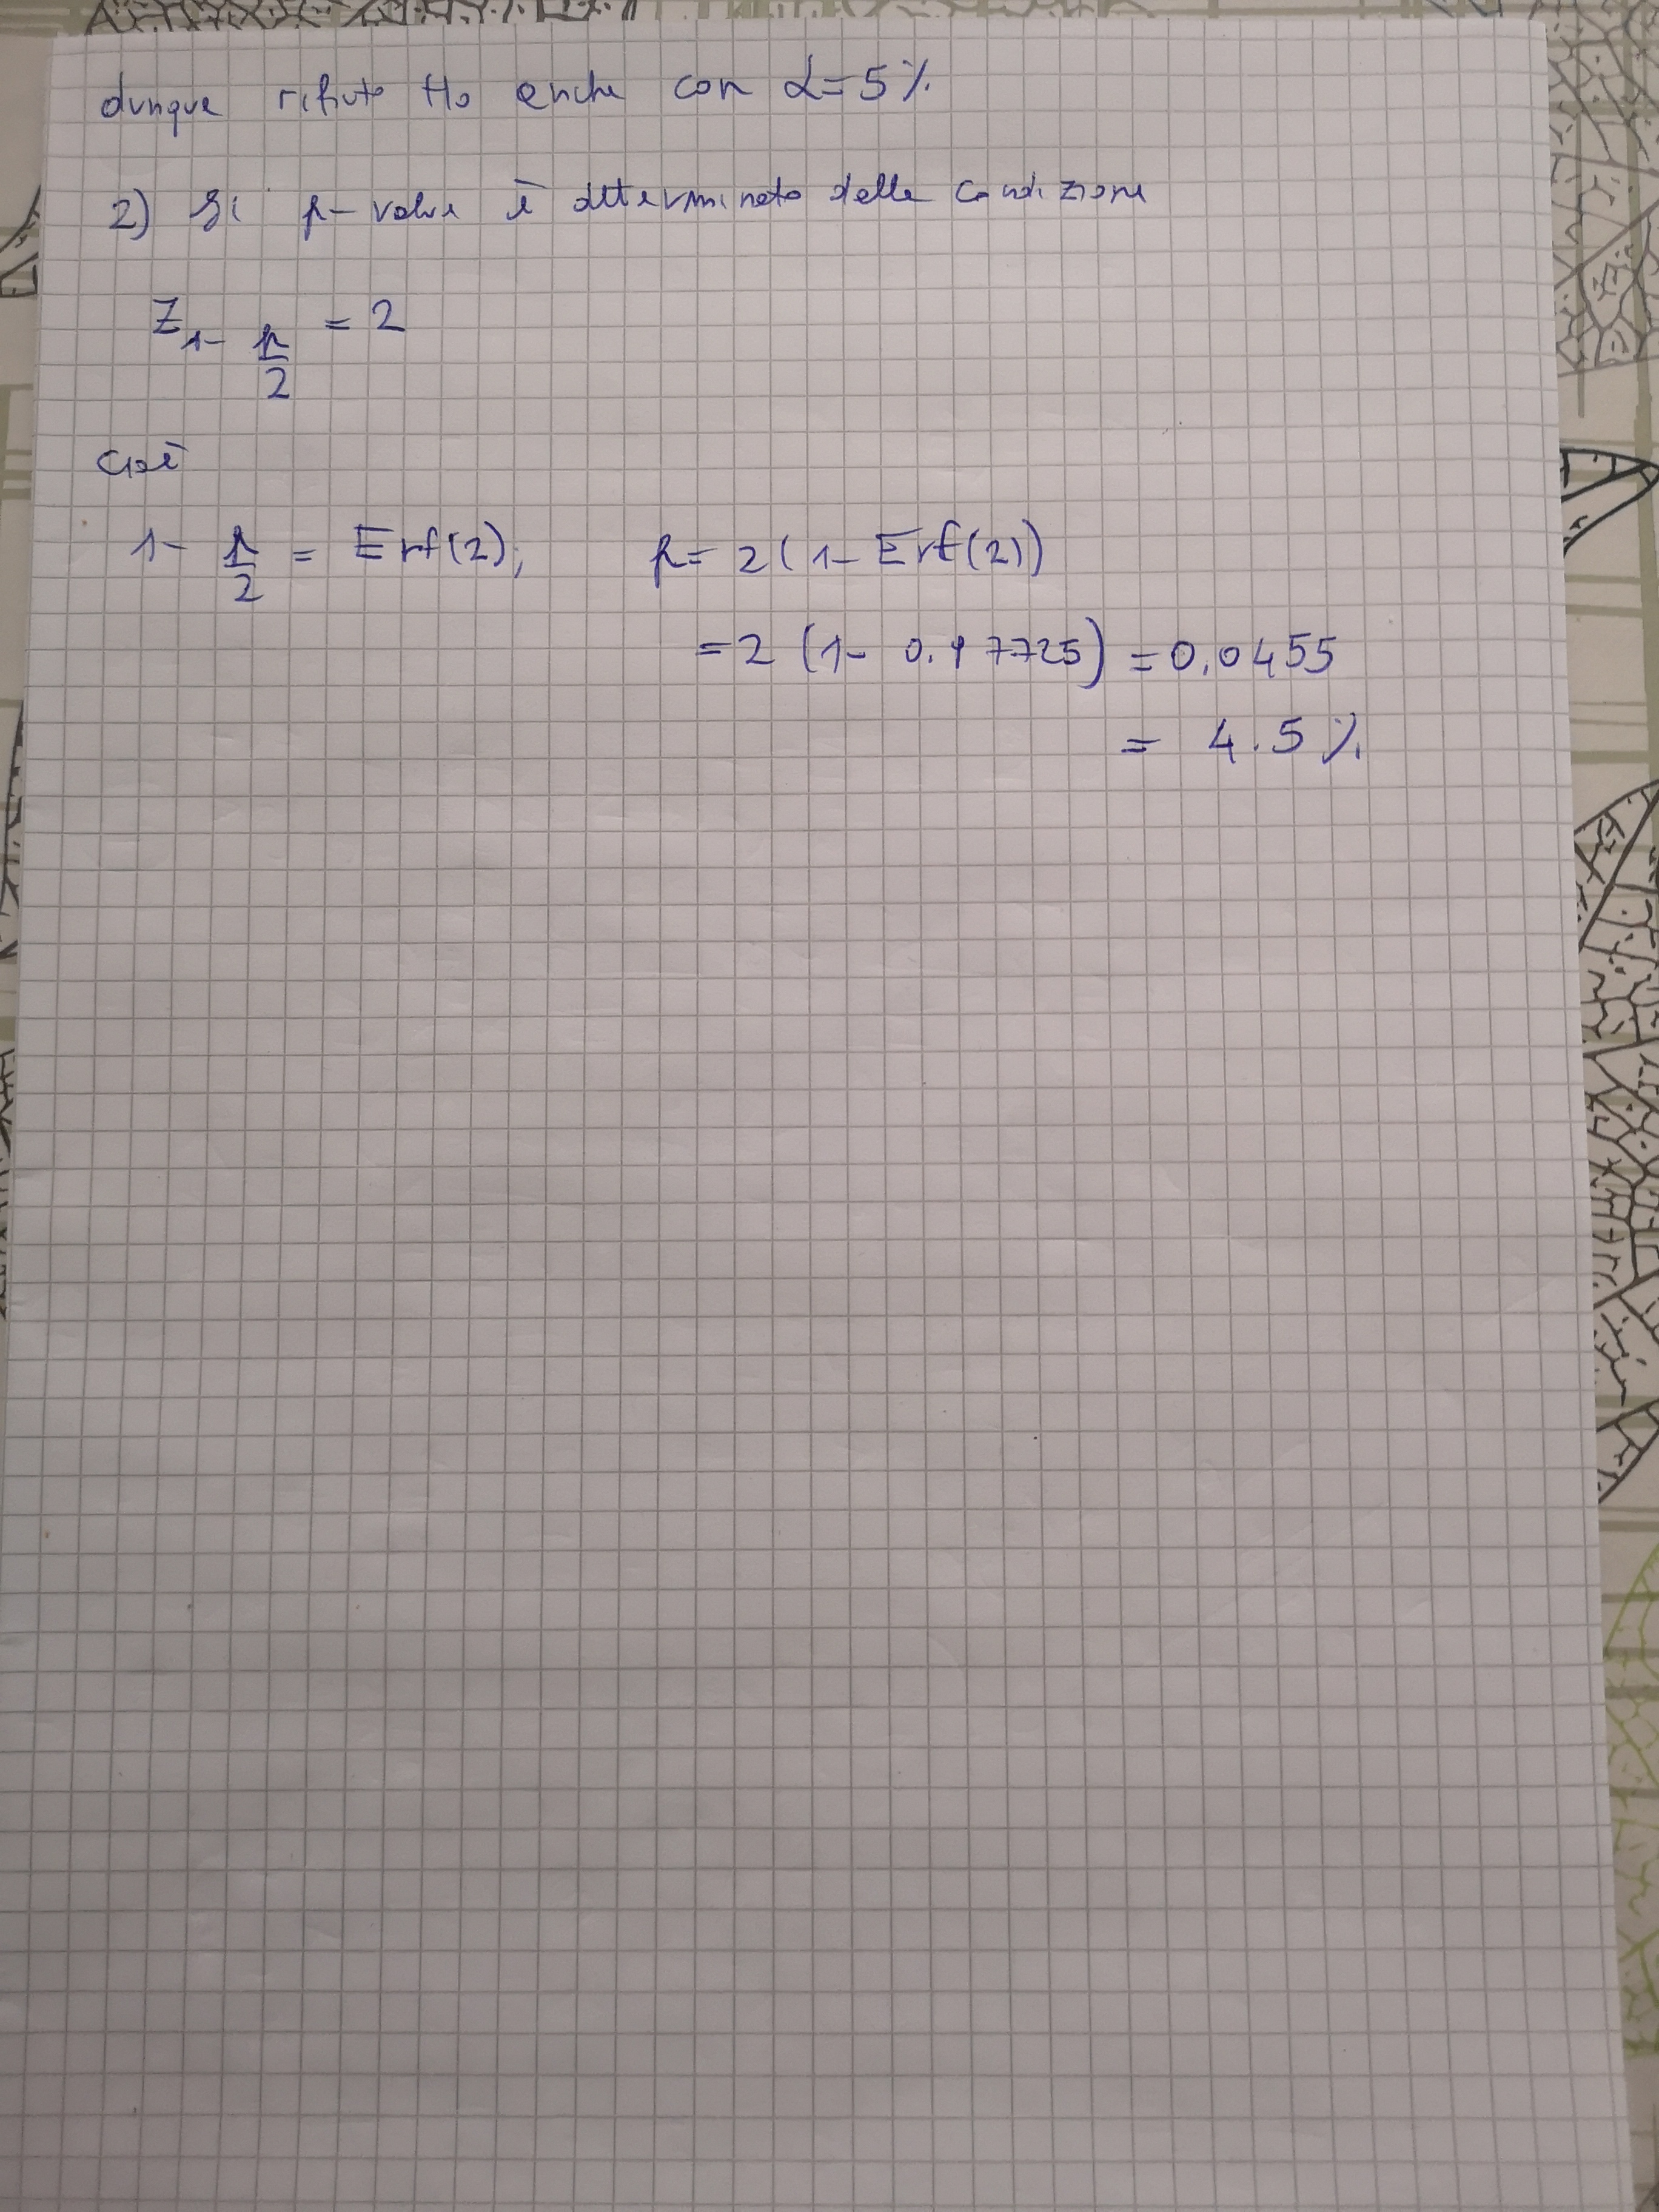 dunque rifiuto H₀ anche con α=5%
2) Il p-value è determinato dalla condizione
Z_{1-p/2} = 2
cioè
1 - p/2 = Erf(2), p = 2(1 - Erf(2))
= 2 (1 - 0.97725) = 0.0455
= 4.5%